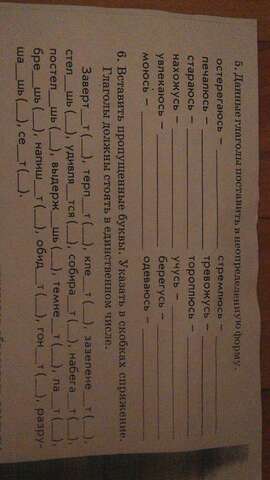 5. Данные глаголы поставить в неопределенную форму.
остерегаюсь – ____________ стремлюсь – ____________
печалюсь – ____________ тревожусь – ____________
стараюсь – ____________ тороплюсь – ____________
нахожусь – ____________ учусь – ____________
увлекаюсь – ____________ берегусь – ____________
моюсь – ____________ одеваюсь – ____________
6. Вставить пропущенные буквы. Указать в скобках спряжение.
Глаголы должны стоять в единственном числе.
Заверт__т (__), терп__т (__), кле__т (__), зазелене__т (__),
стел__шь (__), удивля__тся (__), собира__т (__), набега__т (__),
постел__шь (__), выдерж__шь (__), темне__т (__), ла__т (__),
бре__шь (__), напиш__т (__), обид__т (__), гон__т (__), разру-
ша__шь (__), се__т (__).